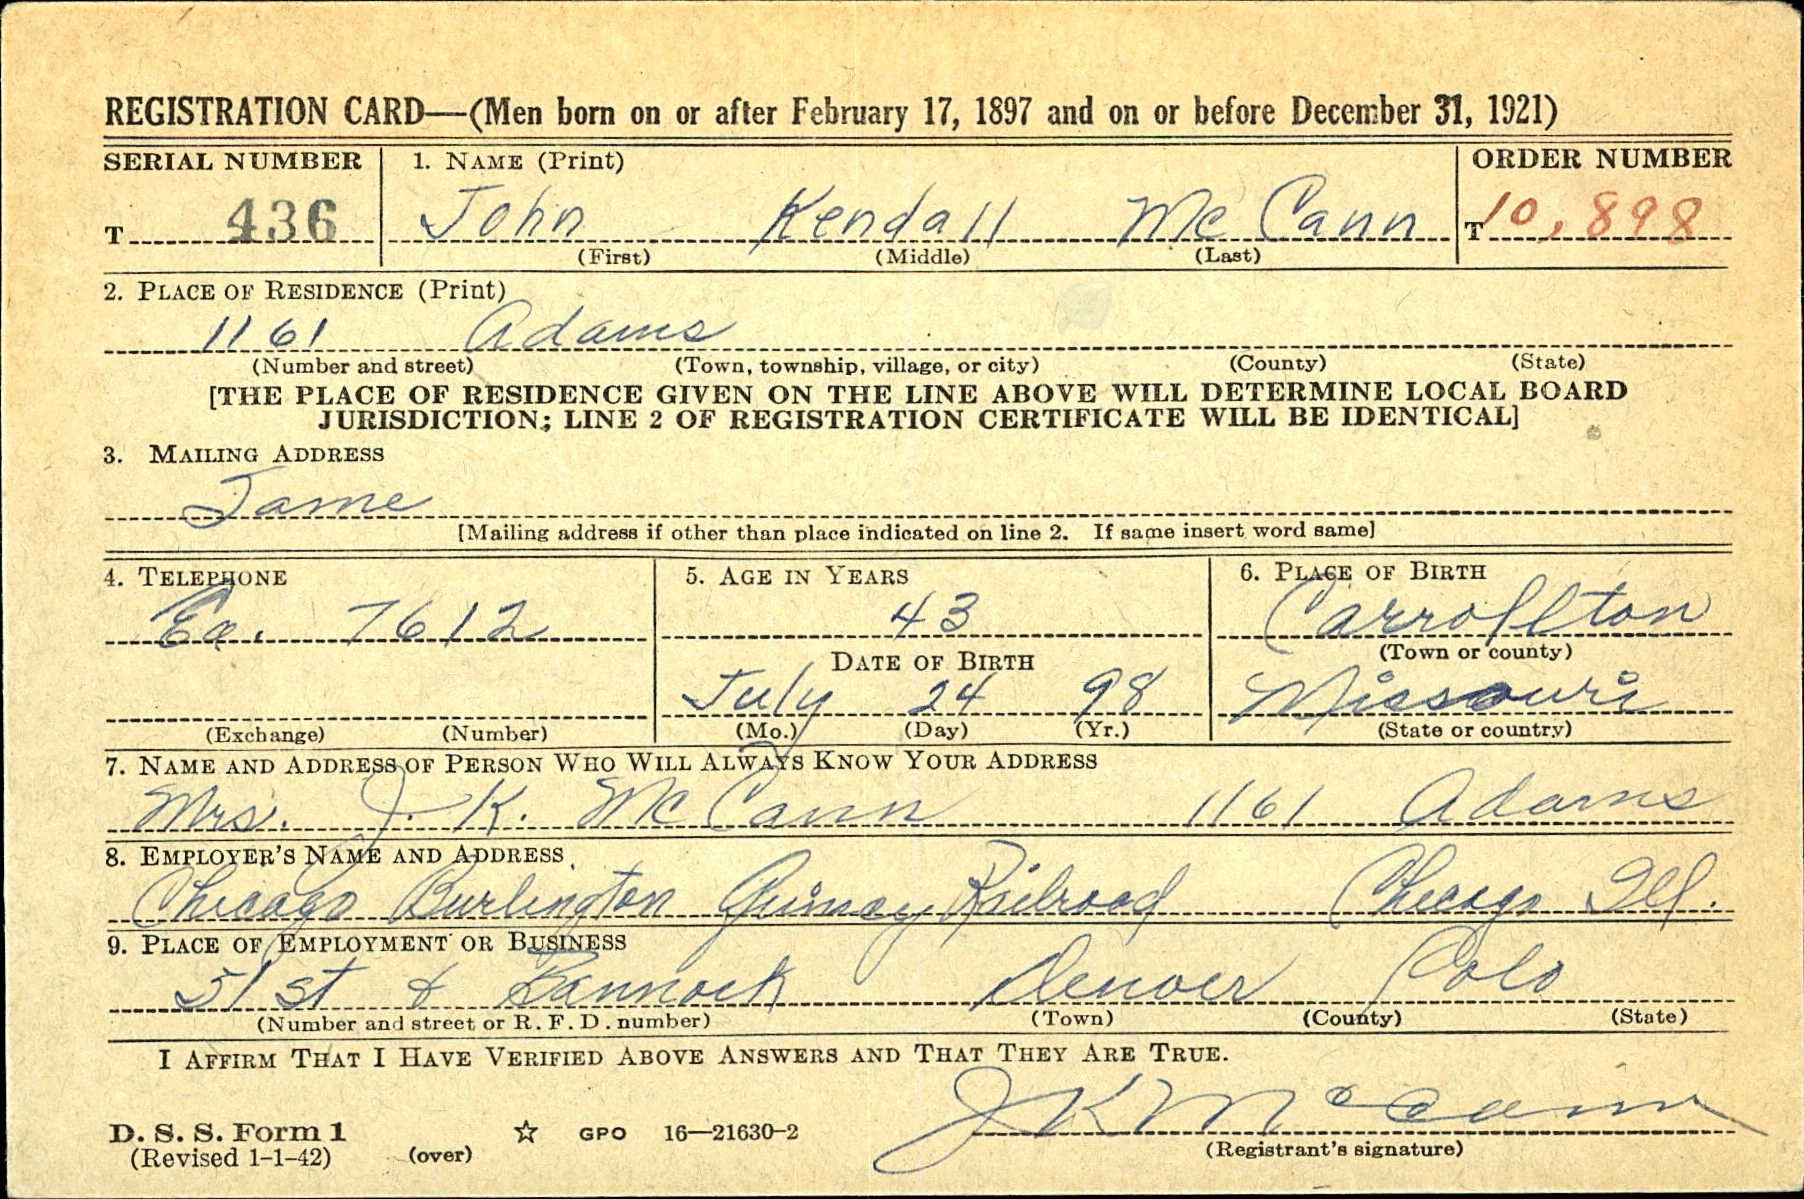 REGISTRATION CARD—(Men born on or after February 17, 1897 and on or before December 31, 1921)
SERIAL NUMBER 1. NAME (Print) ORDER NUMBER
T 436 John Kendall McCann T 10,898
(First) (Middle) (Last)
2. PLACE OF RESIDENCE (Print)
1161 Adams
(Number and street) (Town, township, village, or city) (County) (State)
[THE PLACE OF RESIDENCE GIVEN ON THE LINE ABOVE WILL DETERMINE LOCAL BOARD
JURISDICTION; LINE 2 OF REGISTRATION CERTIFICATE WILL BE IDENTICAL]
3. MAILING ADDRESS
Same
[Mailing address if other than place indicated on line 2. If same insert word same]
4. TELEPHONE 5. AGE IN YEARS 6. PLACE OF BIRTH
Ea. 7612 43 Carrollton
DATE OF BIRTH (Town or county)
July 24 98 Missouri
(Exchange) (Number) (Mo.) (Day) (Yr.) (State or country)
7. NAME AND ADDRESS OF PERSON WHO WILL ALWAYS KNOW YOUR ADDRESS
Mrs. J. K. McCann 1161 Adams
8. EMPLOYER'S NAME AND ADDRESS
Chicago Burlington Quincy Railroad Chicago Ill.
9. PLACE OF EMPLOYMENT OR BUSINESS
51st & Bannock Denver Colo
(Number and street or R. F. D. number) (Town) (County) (State)
I AFFIRM THAT I HAVE VERIFIED ABOVE ANSWERS AND THAT THEY ARE TRUE.
J K McCann
D. S. S. Form 1 GPO 16—21630-2 (Registrant's signature)
(Revised 1-1-42) (over)